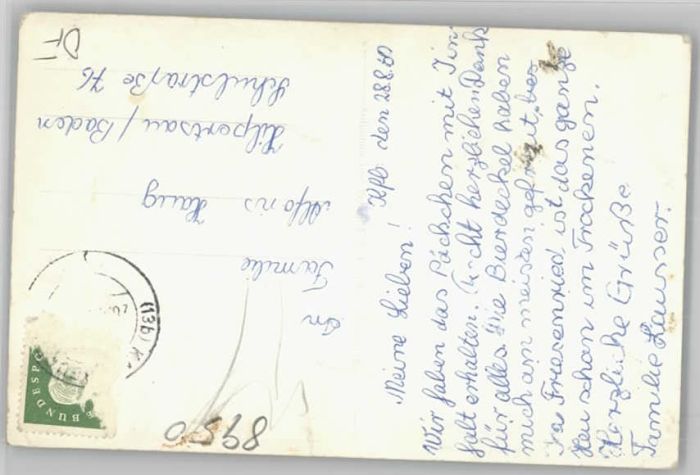 Meine Lieben! Kfb den 28.8.60
Wir haben das Päckchen mit In-
halt erhalten. Recht herzlichen Dank
für alles. Die Bierdeckel haben
mich am meisten gefreut, bes.
In Friesenried ist das ganze
Heu schon im Trockenen.
Herzliche Grüße
Familie Lausser.
An
Familie
Alfons Haug
Hilpertsau / Baden
Schulstraße 76
DF
(13b) K
BUNDESPO
8950